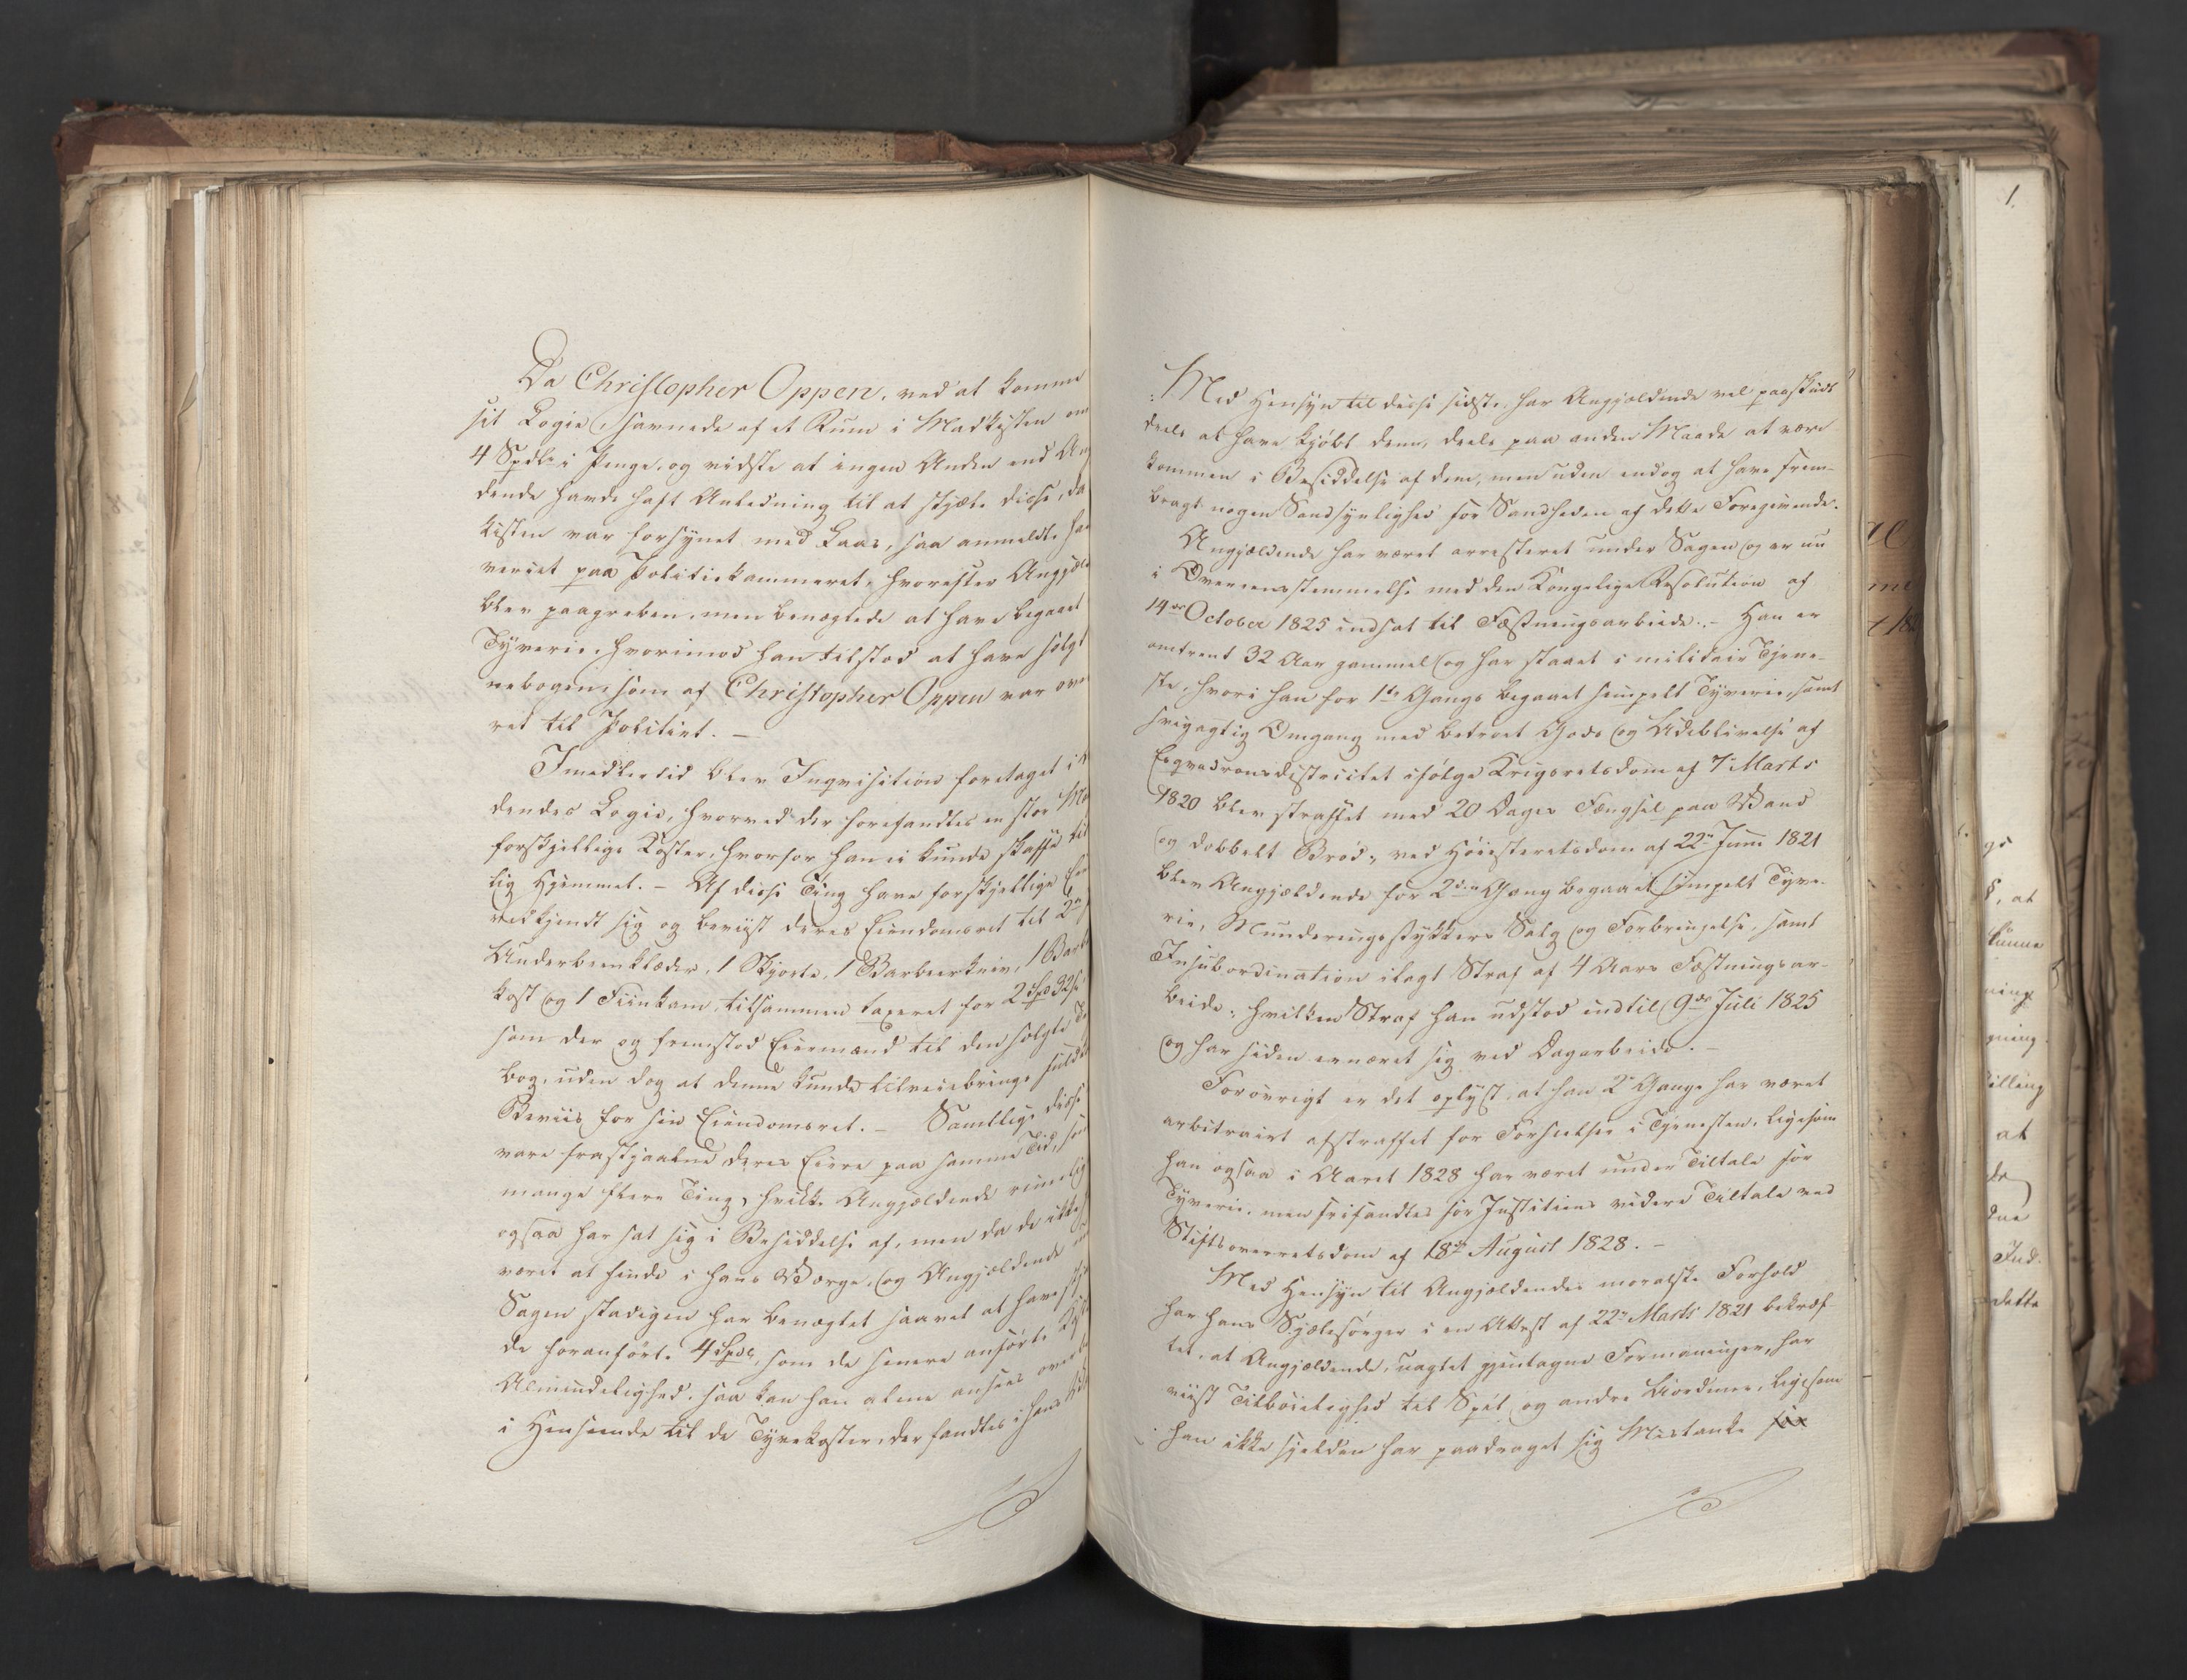 Da Christopher Oppen, ved at komme
sit Logie, savnede af et Rum i Madkisten om
4 Spdlr i Penge, og vidste at ingen Anden end An
dende havde haft Anledning til at stjæle disse, da
kisten var forsynet med Laas, saa anmeldte ha
veriet paa Politiekammeret, hvorefter Angjæl
blev paagreben, men benægtede at have begaaet
Tyverie, hvorimod han tilstod at have solgt
nebogen, som af Christopher Oppen var ove
ret til Politiet. –
Imidlertid blev Inqvisition foretaget i A
dendes Logie, hvorved der forefandtes en stor Mæ
forskjellige Koster, hvorfor han ei kunde skaffe til
lig Hjemmel. – Af disse Ting have forskjellige Ei
vedkjendt sig og beviist deres Eiendomsret til 2
Underbeenklæder, 1 Skjorte, 1 Barbeerkniv, 1 Barb
kost og 1 Fiinkam, tilsammen taxeret for 2 Spd 32 s
som der og fremstod Eiermænd til den solgte
bog, uden dog at denne kunde tilveiebringe fuld
Beviis for sin Eiendomsret. – Samtlige disse
vare frastjaalne deres Eiere paa samme Tid, som
mange flere Ting, hvilke Angjældende rimelig
ogsaa har sat sig i Besiddelse af, men da de ikke
været at finde i hans Værge, og Angjældende
Sagen stadigen har benægtet saavel at have stj
de foranførte 4 Spdlr, som de senere anførte
Almindelighed, saa kan han alene ansees over
i Henseende til de Tyvekoster, der fandtes i hans
Med Hensyn til disse sidste, har Angjældende vel paaskudt
deels at have kjøbt dem, deels paa anden Maade at være
kommen i Besiddelse af dem, men uden endog at have frem-
bragt nogen Sandsynlighed for Sandheden af dette Foregivende.
Angjældende har været arresteret under Sagen og er nu
i Overeensstemmelse med den Kongelige Resolution af
14de October 1825 indsat til Fæstningsarbeide. – Han er
omtrent 32 Aar gammel og har staaet i militair Tjene-
ste, hvori han for 1ste Gangs begaaet simpelt Tyverie, samt
svigagtig Omgang med betroet Gods og Udeblivelse af
Esqvadronsdistrictet ifølge Krigsretsdom af 7 Marts
1820 blev straffet med 20 Dages Fængsel paa Vand
og dobbelt Brød; ved Høiesteretsdom af 22de Juni 1821
blev Angjældende for 2den Gang begaaet simpelt Tyve-
rie, Munderingsstykkers Salg og Forbringelse, samt
Insubordination ilagt Straf af 4 Aars Fæstningsar-
beide; hvilken Straf han udstod indtil 9de Juli 1825
og har siden ernæret sig ved Dagarbeide. –
Forøvrigt er det oplyst, at han 2de Gange har været
arbitrairt afstraffet for Forseelser i Tjenesten, ligesom
han ogsaa i Aaret 1828 har været under Tiltale for
Tyverie, men frifandtes for Justitiens videre Tiltale ved
Stiftsoverretsdom af 18de August 1828. –
Med Hensyn til Angjældendes moralske Forhold
har hans Sjælesørger i en Attest af 22de Marts 1821 bekræf-
tet, at Angjældende, uagtet gjentagne Formaninger, har
viist Tilbøielighed til Spil og andre Uordener, ligesom
han ikke sjelden har paadraget sig Mistanke for
1.
§, at
kunne
ning
gning
illing
at
de
Ind-
dette